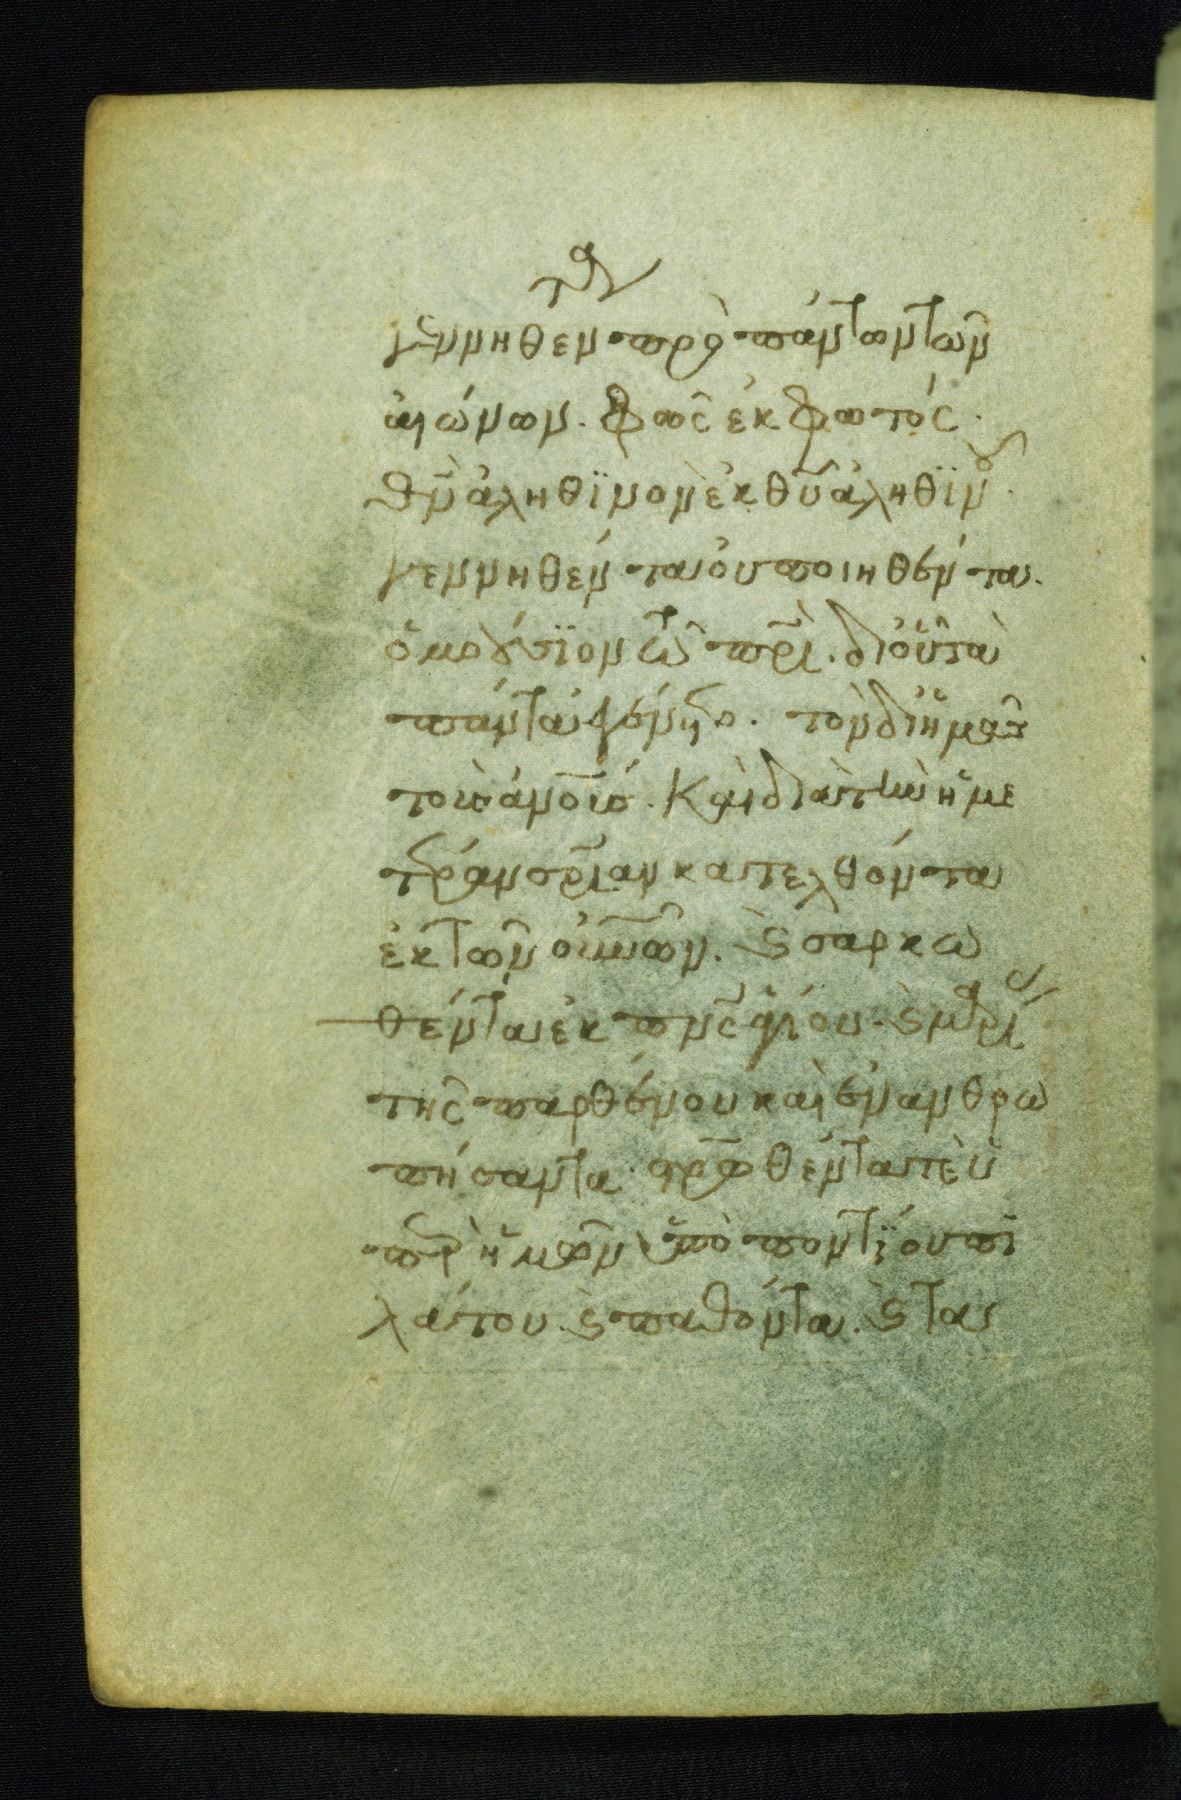 τα
γεννηθεν πρὸ πάντων τῶν
αἰώνων. φῶς ἐκ φωτός.
θν̅ ἀληθϊνὸν ἐκ θυ̅ ἀληθϊνοῦ.
γεννηθέντα οὐ ποιηθέντα.
ὁμοούσϊον τῶ πρι̅. δι οὗ τὰ
πάντα ἐγένετο. τὸν δι ἡμᾶς
τοὺς ἀνο̅υς. Καὶ διὰ τὴν ἡμε
τέραν σρι̅αν κατελθόντα
ἐκ τῶν οὐνῶ̅ν. ϗ σαρκω
θέντα ἐκ πνς̅ ἁγίου. ϗ μαρί
τῆς παρθένου καὶ ἐνανθρω
πήσαντα. στρω̅θέντα τὲ ὑ
πὲρ ἡμῶν ὑπὸ ποντϊου πι
λάτου. ϗ παθόντα. ϗ τα